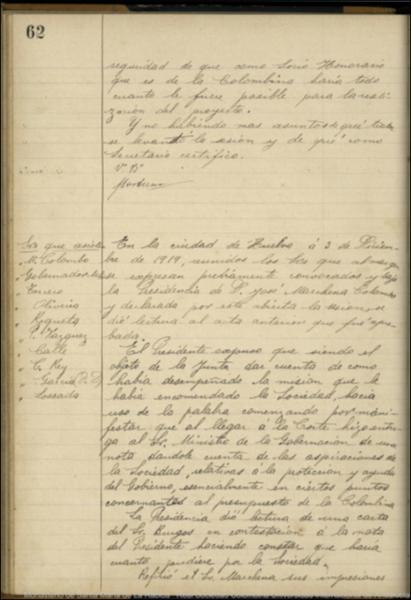 62
seguridad de que como Socio Honorario
que es de la Colombina haria todo
cuanto le fuere posible para la reali-
zación del proyecto.
Y no habiendo mas asuntos de que tratar
se levantó la sesión y de que como
Secretario certifico.
Vº Bº
Sres que asisten
M. Colombo
Gobernador
Terrero
Oliveira
Requeta
P. Vazquez
Calle
G. Rey
Garcia
Lossada
En la ciudad de Huelva á 3 de Diciem-
bre de 1919, reunidos los Sres que al margen
se expresan previamente convocados y bajo
la Presidencia de D. José Marchena Colombo
y declarada por este abierta la sesion, se
dió lectura al acta anterior que fué apro-
bada.
El Presidente expuso que siendo el
objeto de la Junta dar cuenta de como
habia desempeñado la mision que le
habia encomendado la Sociedad, hacia
uso de la palabra comenzando por mani-
festar que al llegar á la Corte hizo entre-
ga al Sr. Ministro de la Gobernación de una
nota dandole cuenta de las aspiraciones de
la Sociedad relativas á la proteccion y ayuda
del Gobierno, esencialmente en ciertos puntos
concernantes al presupuesto de la Colombina
La Presidencia dió lectura de una carta
del Sr. Burgos en contestacion á la nota
del Presidente haciendo constar que haria
cuanto pudiere por la Sociedad.
Refirió el Sr. Marchena sus impresiones